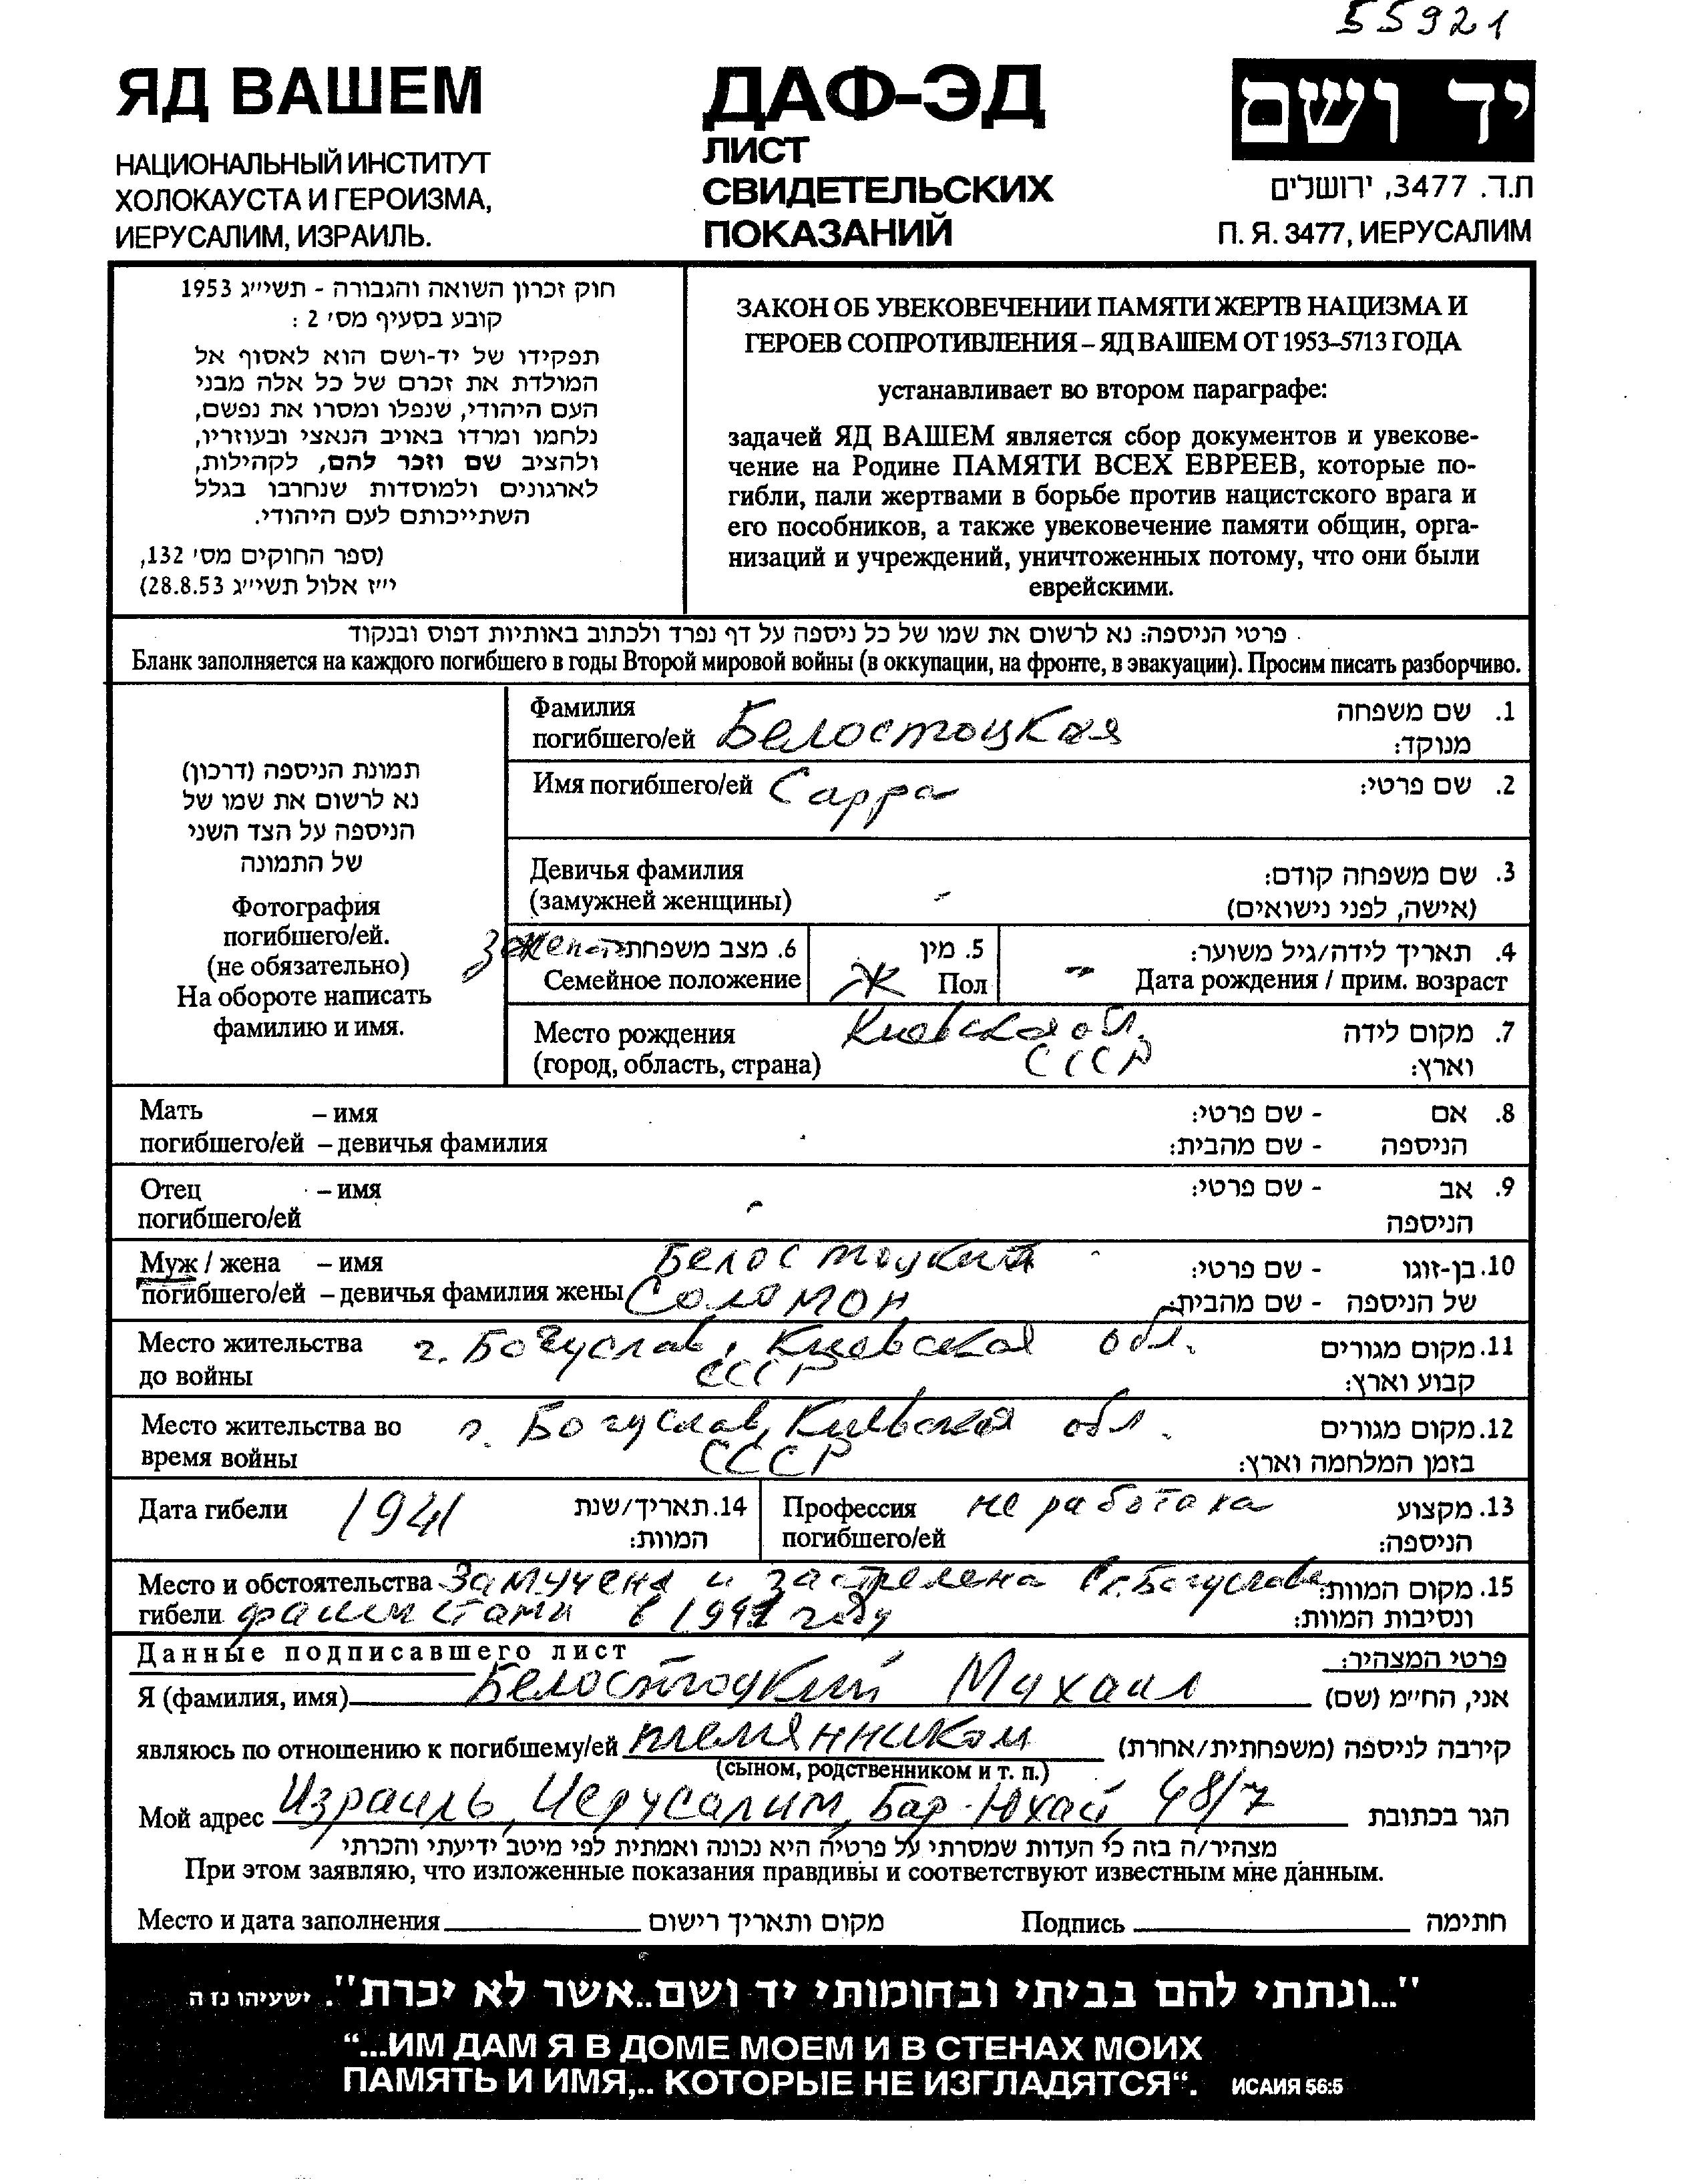 55921
ЯД ВАШЕМ
НАЦИОНАЛЬНЫЙ ИНСТИТУТ
ХОЛОКАУСТА И ГЕРОИЗМА,
ИЕРУСАЛИМ, ИЗРАИЛЬ.
ДАФ-ЭД
ЛИСТ
СВИДЕТЕЛЬСКИХ
ПОКАЗАНИЙ
יד ושם
ת.ד. 3477, ירושלים
П. Я. 3477, ИЕРУСАЛИМ
חוק זכרון השואה והגבורה - תשי״ג 1953
קובע בסעיף מס׳ 2 :
תפקידו של יד-ושם הוא לאסוף אל
המולדת את זכרם של כל אלה מבני
העם היהודי, שנפלו ומסרו את נפשם,
נלחמו ומרדו באויב הנאצי ובעוזריו,
ולהציב שם וזכר להם, לקהילות,
לארגונים ולמוסדות שנחרבו בגלל
השתייכותם לעם היהודי.
(ספר החוקים מס׳ 132,
י״ז אלול תשי״ג 28.8.53)
ЗАКОН ОБ УВЕКОВЕЧЕНИИ ПАМЯТИ ЖЕРТВ НАЦИЗМА И
ГЕРОЕВ СОПРОТИВЛЕНИЯ – ЯД ВАШЕМ ОТ 1953–5713 ГОДА
устанавливает во втором параграфе:
задачей ЯД ВАШЕМ является сбор документов и увекове-
чение на Родине ПАМЯТИ ВСЕХ ЕВРЕЕВ, которые по-
гибли, пали жертвами в борьбе против нацистского врага и
его пособников, а также увековечение памяти общин, орга-
низаций и учреждений, уничтоженных потому, что они были
еврейскими.
פרטי הניספה: נא לרשום את שמו של כל ניספה על דף נפרד ולכתוב באותיות דפוס ובנקוד
Бланк заполняется на каждого погибшего в годы Второй мировой войны (в оккупации, на фронте, в эвакуации). Просим писать разборчиво.
תמונת הניספה (דרכון)
נא לרשום את שמו של
הניספה על הצד השני
של התמונה
Фотография
погибшего/ей.
(не обязательно)
На обороте написать
фамилию и имя.
Фамилия 1. שם משפחה
погибшего/ей Белостоцкая מנוקד:
Имя погибшего/ей Сарра 2. שם פרטי:
Девичья фамилия 3. שם משפחה קודם:
(замужней женщины) - (אישה, לפני נישואים)
6. מצב משפחתי 5. מין 4. תאריך לידה/גיל משוער:
Семейное положение Ж Пол - Дата рождения / прим. возраст
Место рождения Киевская обл. 7. מקום לידה
(город, область, страна) СССР וארץ:
Мать – имя - שם פרטי: 8. אם
погибшего/ей – девичья фамилия - שם מהבית: הניספה
Отец – имя - שם פרטי: 9. אב
погибшего/ей - הניספה
Муж / жена – имя Белостоцкий - שם פרטי: 10. בן-זוגו
погибшего/ей – девичья фамилия жены Соломон - שם מהבית: של הניספה
Место жительства г. Богуслав, Киевская обл. 11. מקום מגורים
до войны СССР קבוע וארץ:
Место жительства во г. Богуслав, Киевская обл. 12. מקום מגורים
время войны СССР בזמן המלחמה וארץ:
Дата гибели 1941 14. תאריך/שנת Профессия не работала 13. מקצוע
המוות: погибшего/ей הניספה:
Место и обстоятельства Замучена и застрелена в г. Богуславе 15. מקום המוות:
гибели фашистами в 1941 году ונסיבות המוות:
Данные подписавшего лист פרטי המצהיר:
Я (фамилия, имя) Белостоцкий Михаил אני, הח״מ (שם)
являюсь по отношению к погибшему/ей племянником קירבה לניספה (משפחתית/אחרת)
(сыном, родственником и т. п.)
Мой адрес Израиль, Иерусалим, Бар-Юхай 48/7 הגר בכתובת
מצהיר/ה בזה כי העדות שמסרתי על פרטיה היא נכונה ואמתית לפי מיטב ידיעתי והכרתי
При этом заявляю, что изложенные показания правдивы и соответствуют известным мне данным.
Место и дата заполнения מקום ותאריך רישום Подпись חתימה
"...ונתתי להם בביתי ובחומותי יד ושם..אשר לא יכרת". ישעיהו נז ה
“...ИМ ДАМ Я В ДОМЕ МОЕМ И В СТЕНАХ МОИХ
ПАМЯТЬ И ИМЯ,.. КОТОРЫЕ НЕ ИЗГЛАДЯТСЯ“. ИСАИЯ 56:5